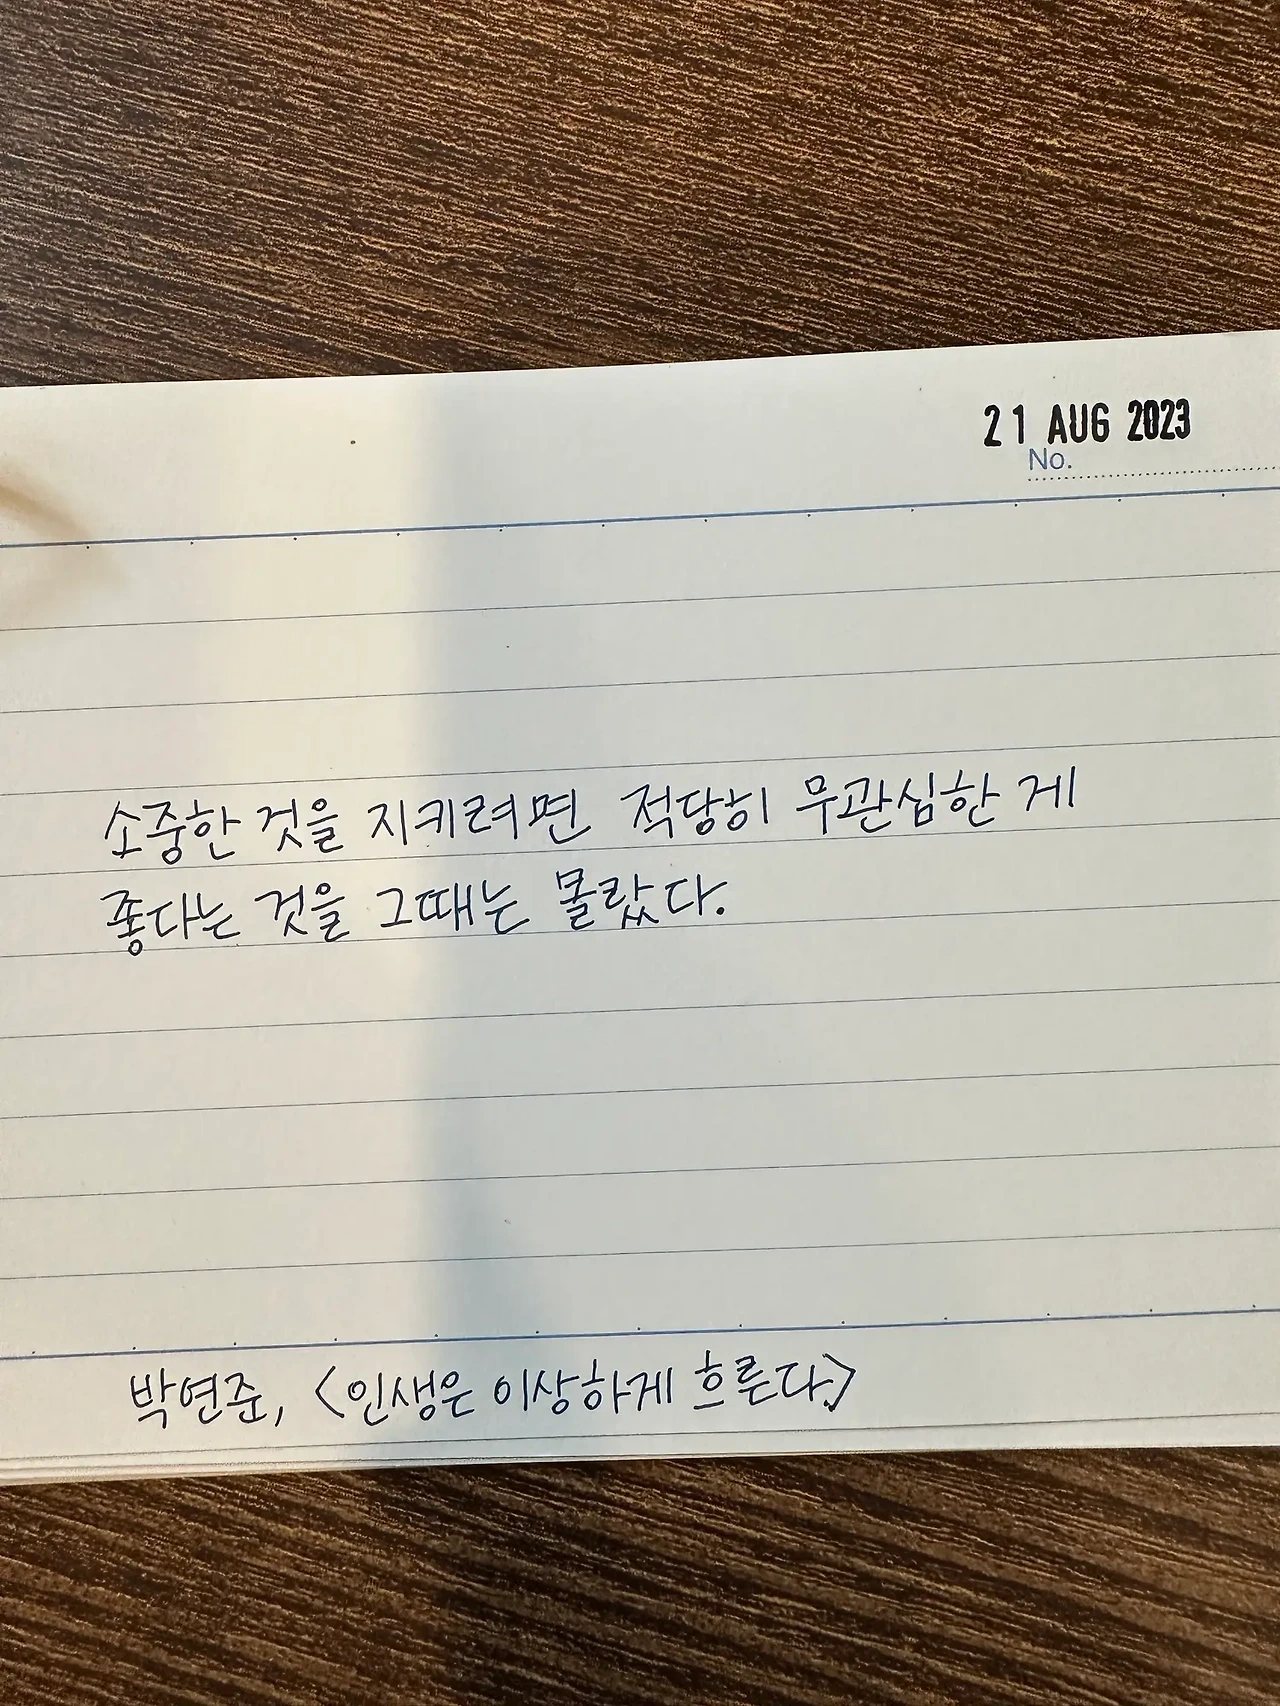 21 AUG 2023
No.
소중한 것을 지키려면 적당히 무관심한 게
좋다는 것을 그때는 몰랐다.
박연준, <인생은 이상하게 흐른다>